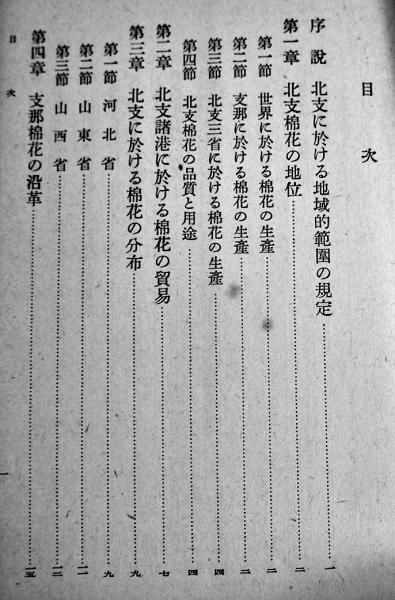 目次
序説 北支に於ける地域的範圍の規定……一
第一章 北支棉花の地位……二
第一節 世界に於ける棉花の生產……二
第二節 支那に於ける棉花の生產……二
第三節 北支三省に於ける棉花の生產……四
第四節 北支棉花の品質と用途……四
第二章 北支諸港に於ける棉花の貿易……七
第三章 北支に於ける棉花の分布……九
第一節 河北省……九
第二節 山東省……一一
第三節 山西省……一三
第四章 支那棉花の沿革……一五
目次
一